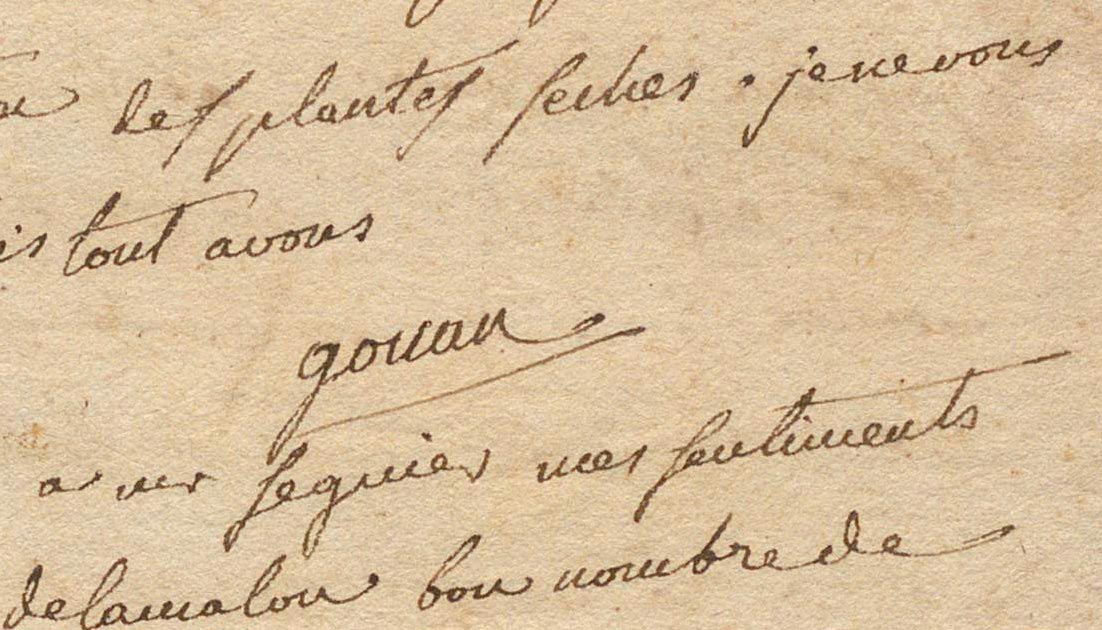 des plantes seches . je ne vous
is tout a vous
gouan
a mr seguier mes sentiments
de lamalou bon nombre de